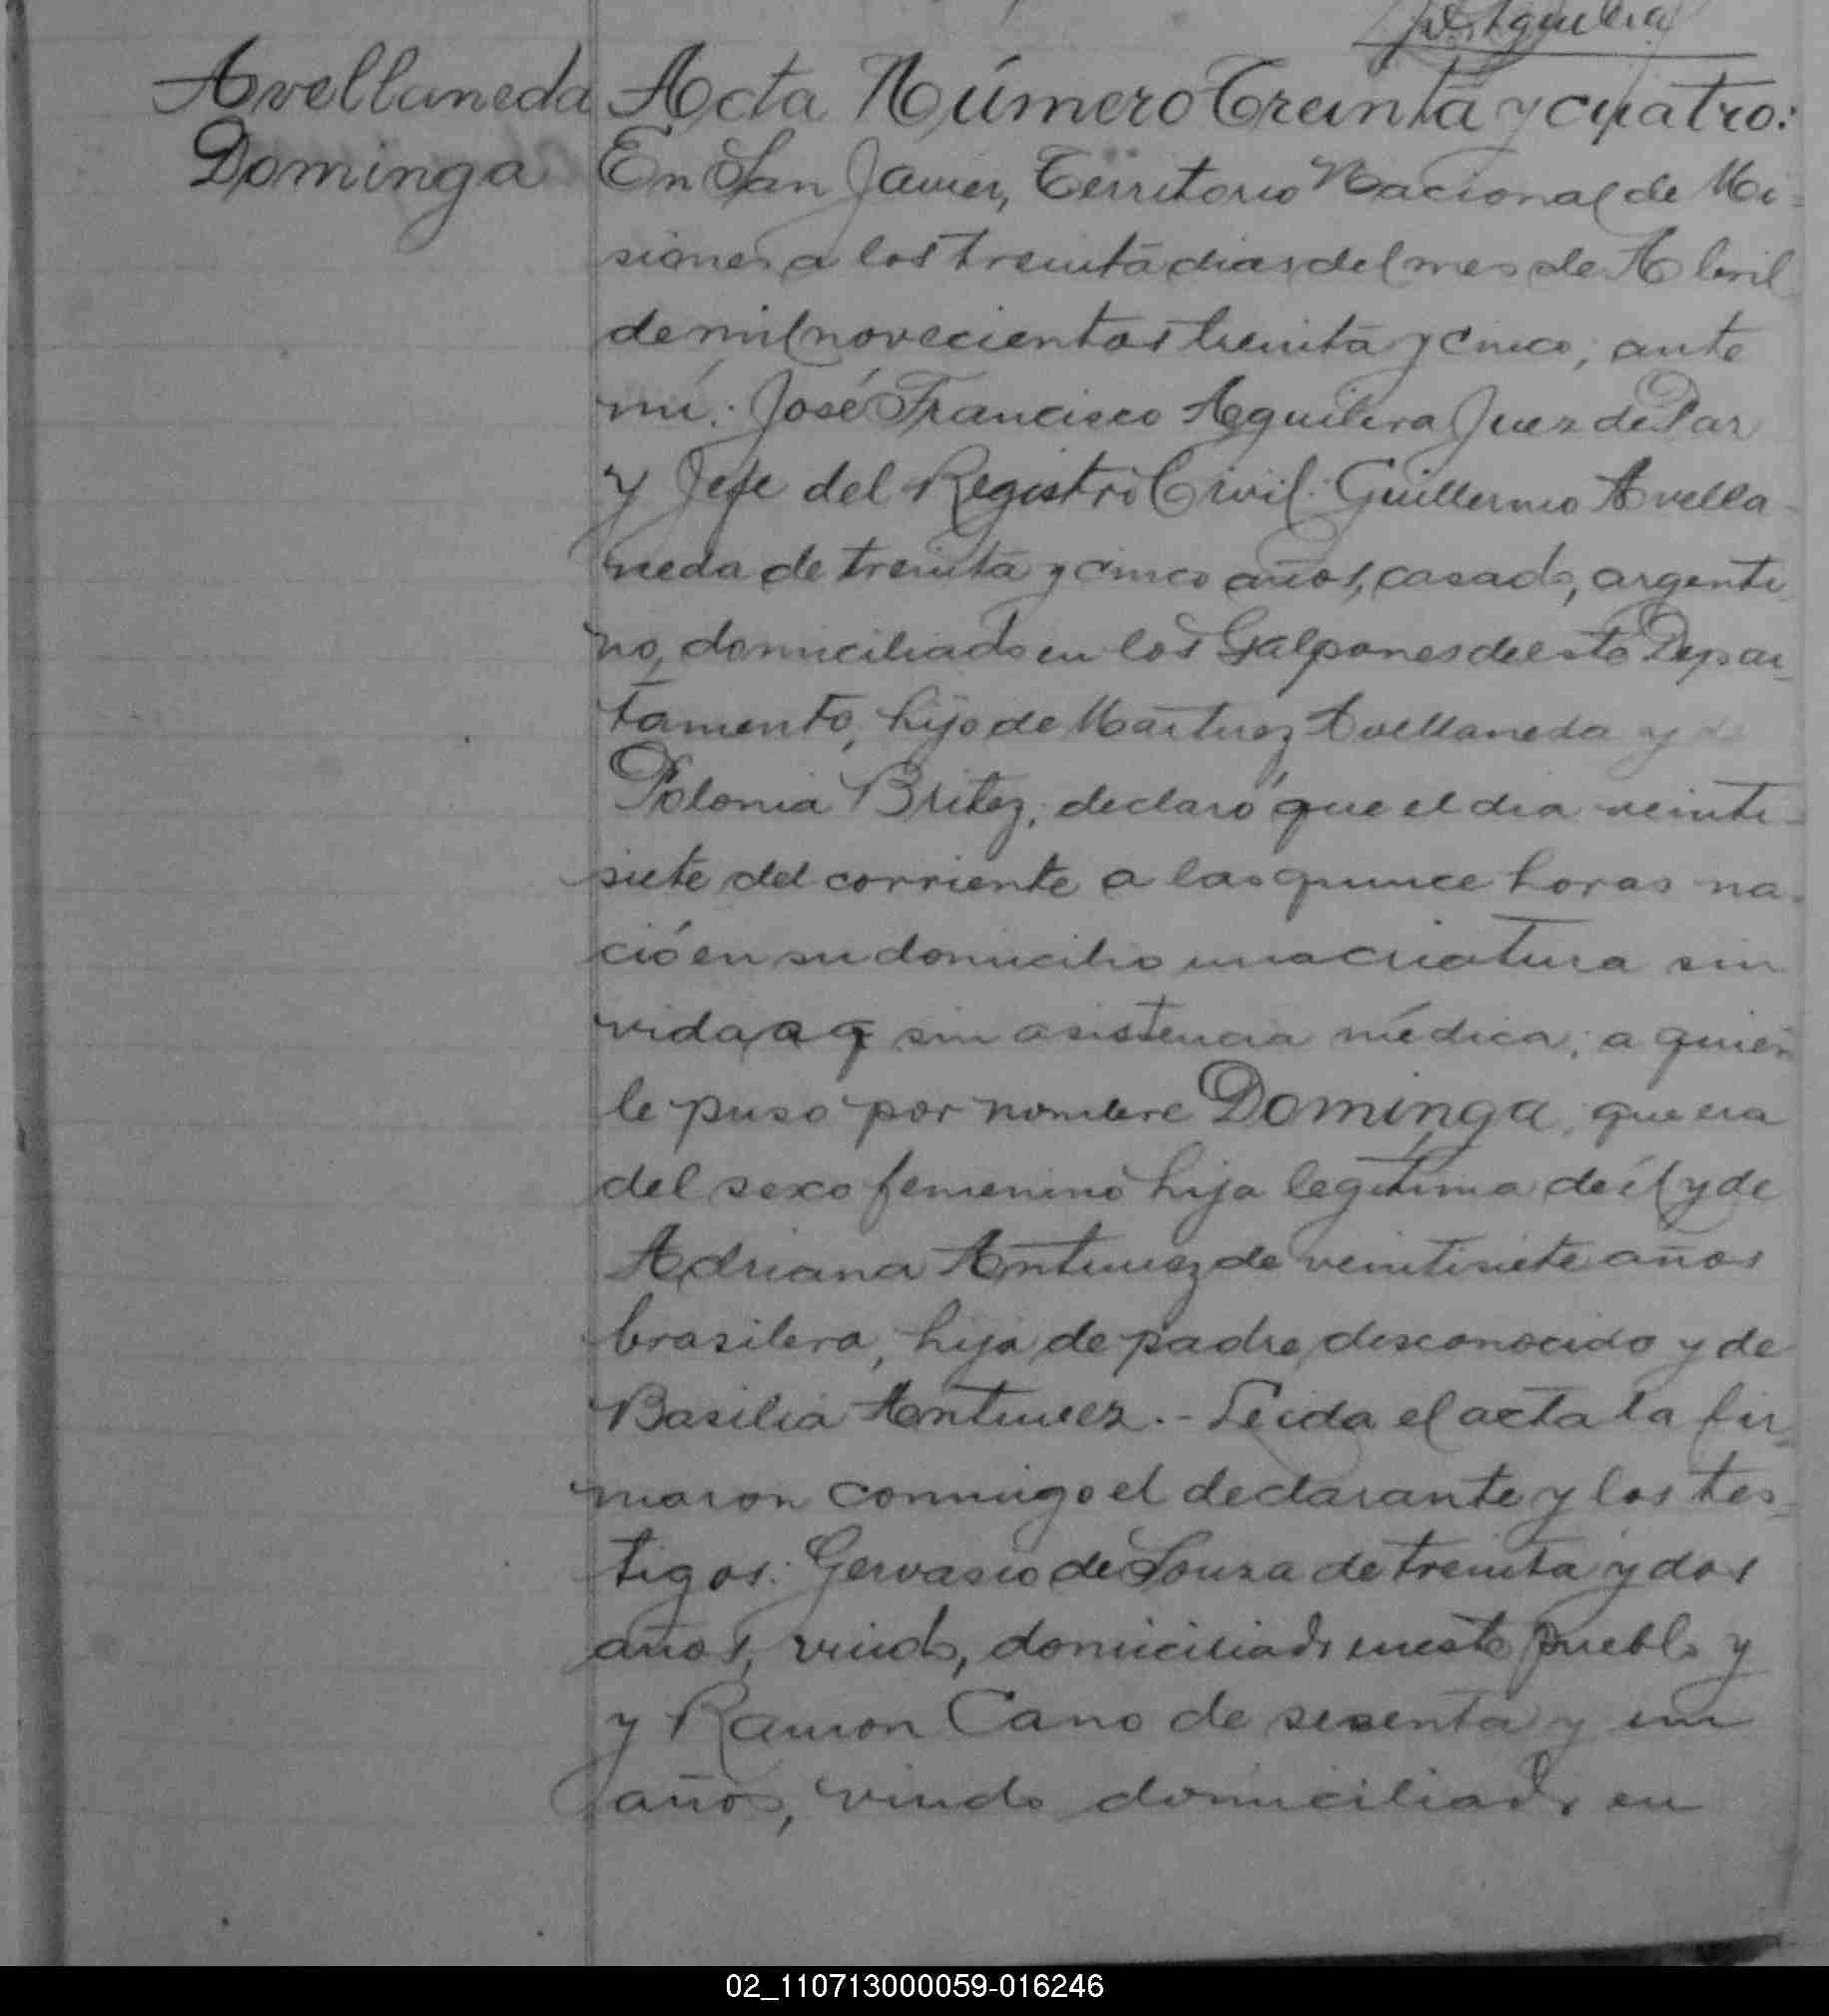 J. F. Aguilera
Avellaneda
Dominga
Acta Número Treinta y cuatro:
En San Javier, Territorio Nacional de Mi-
siones a los treinta dias del mes de Abril
de mil novecientos treinta y cinco, ante
mí: José Francisco Aguilera Juez de Paz
y Jefe del Registro Civil: Guillermo Avella-
neda de treinta y cinco años, casado, argenti-
no, domiciliado en los Galpones de este Depar-
tamento, hijo de Martinez Avellaneda y de
Polonia Britez, declaró que el dia veinti-
siete del corriente a las quince horas na-
ció en su domicilio una criatura sin
vida a q sin asistencia médica; a quien
le puso por nombre Dominga, que era
del sexo femenino hija legítima de él y de
Adriana Antunez de veintisiete años
brasilera, hija de padre desconocido y de
Basilia Antunez.- Leida el acta la fir-
maron conmigo el declarante y los tes-
tigos: Gervasio de Souza de treinta y dos
años, viudo, domiciliado en este pueblo y
y Ramon Cano de sesenta y un
años, viudo domiciliado en
02_110713000059-016246